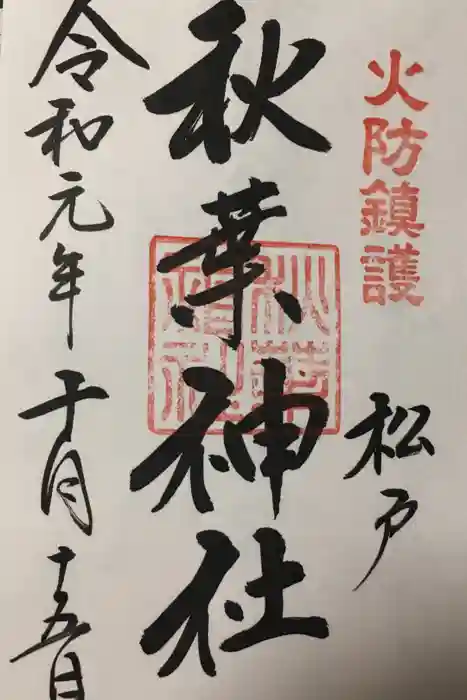 火防鎮護
松戸
秋葉神社
秋葉神社
令和元年十月十五日